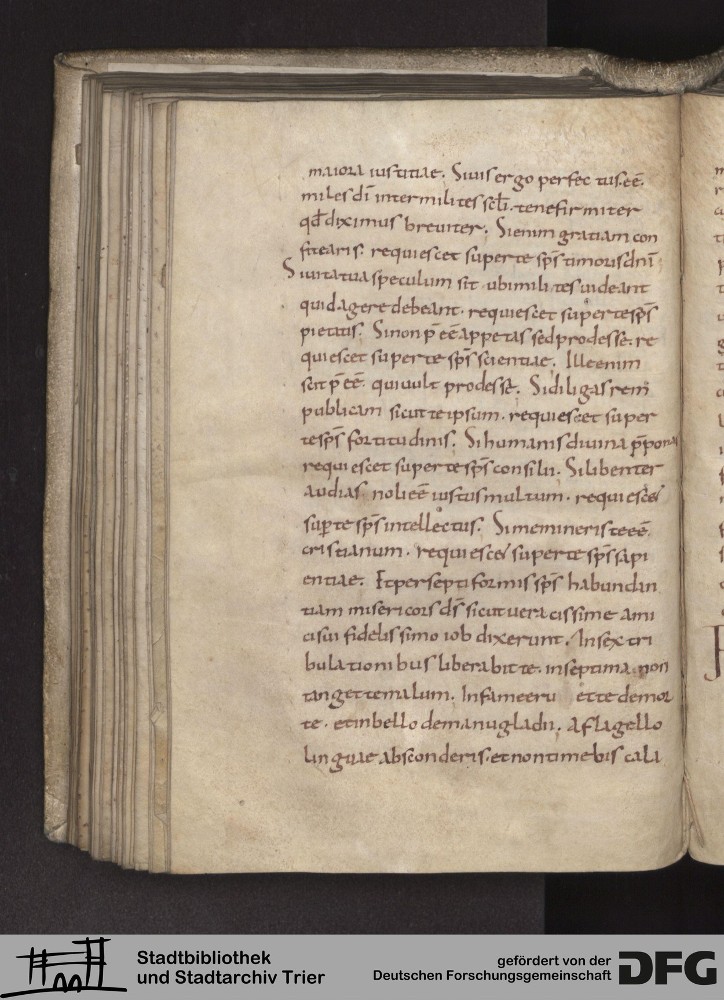 maiora iustitiae. Siuis ergo perfectus eē.
miles dī inter milites scłi. tene firmiter
qđ diximus breuiter. Si enim gratiam con
fitearis. requiescet super te sp̄s timoris dn̄i
Si uita tua speculum sit. ubi milites uideant
quid agere debeant. requiescet super te sp̄s
pietatis. Si non p̄eē appetas sed prodesse. re
quiescet super te sp̄s scientiae. Ille enim
scit p̄eē. qui uult prodesse. Si diligas rem
publicam sicut te ipsum. requiescet super
te sp̄s fortitudinis. Si humanis diuina p̄ponas
requiescet super te sp̄s consilii. Si libenter
audias. noli eē iustus multum. requiescet
super te sp̄s intellectus. Si memineris te eē
cristianum. requiescet super te sp̄s sapi
entiae. Et per septiformis sp̄s habundan
tiam misericors d̄s sicut ueracissime ami
ci sui fidelissimo iob dixerunt. In sex tri
bulationibus liberabit te. in septima non
tanget te malum. In fame eru et te de mor
te. et in bello de manu gladii. A flagello
linguae absconderis. et non timebis cala
Stadtbibliothek
und Stadtarchiv Trier
gefördert von der
Deutschen Forschungsgemeinschaft
DFG